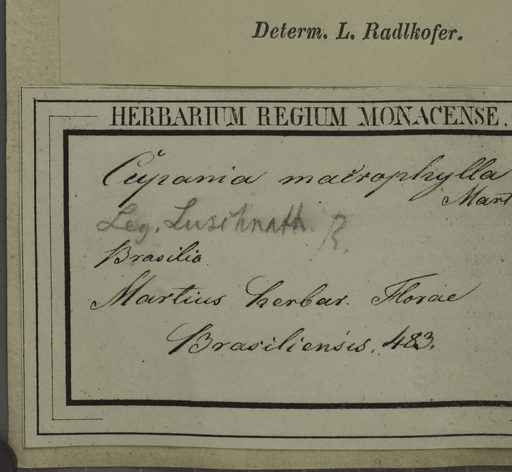 Determ. L. Radlkofer.
HERBARIUM REGIUM MONACENSE.
Cupania macrophylla
Mart
Leg. Luschnath. R.
Brasilia
Martius herbar. Florae
Brasiliensis. 483.